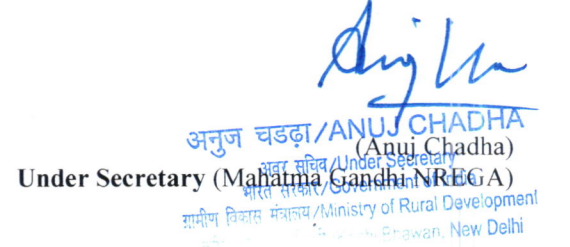 अनुज चडढ़ा/ANUJ CHADHA
(Anuj Chadha)
अवर सचिव/Under Secretary
Under Secretary (Mahatma Gandhi NREGA)
भारत सरकार/Government of India
ग्रामीण विकास मंत्रालय/Ministry of Rural Development
Bhawan, New Delhi